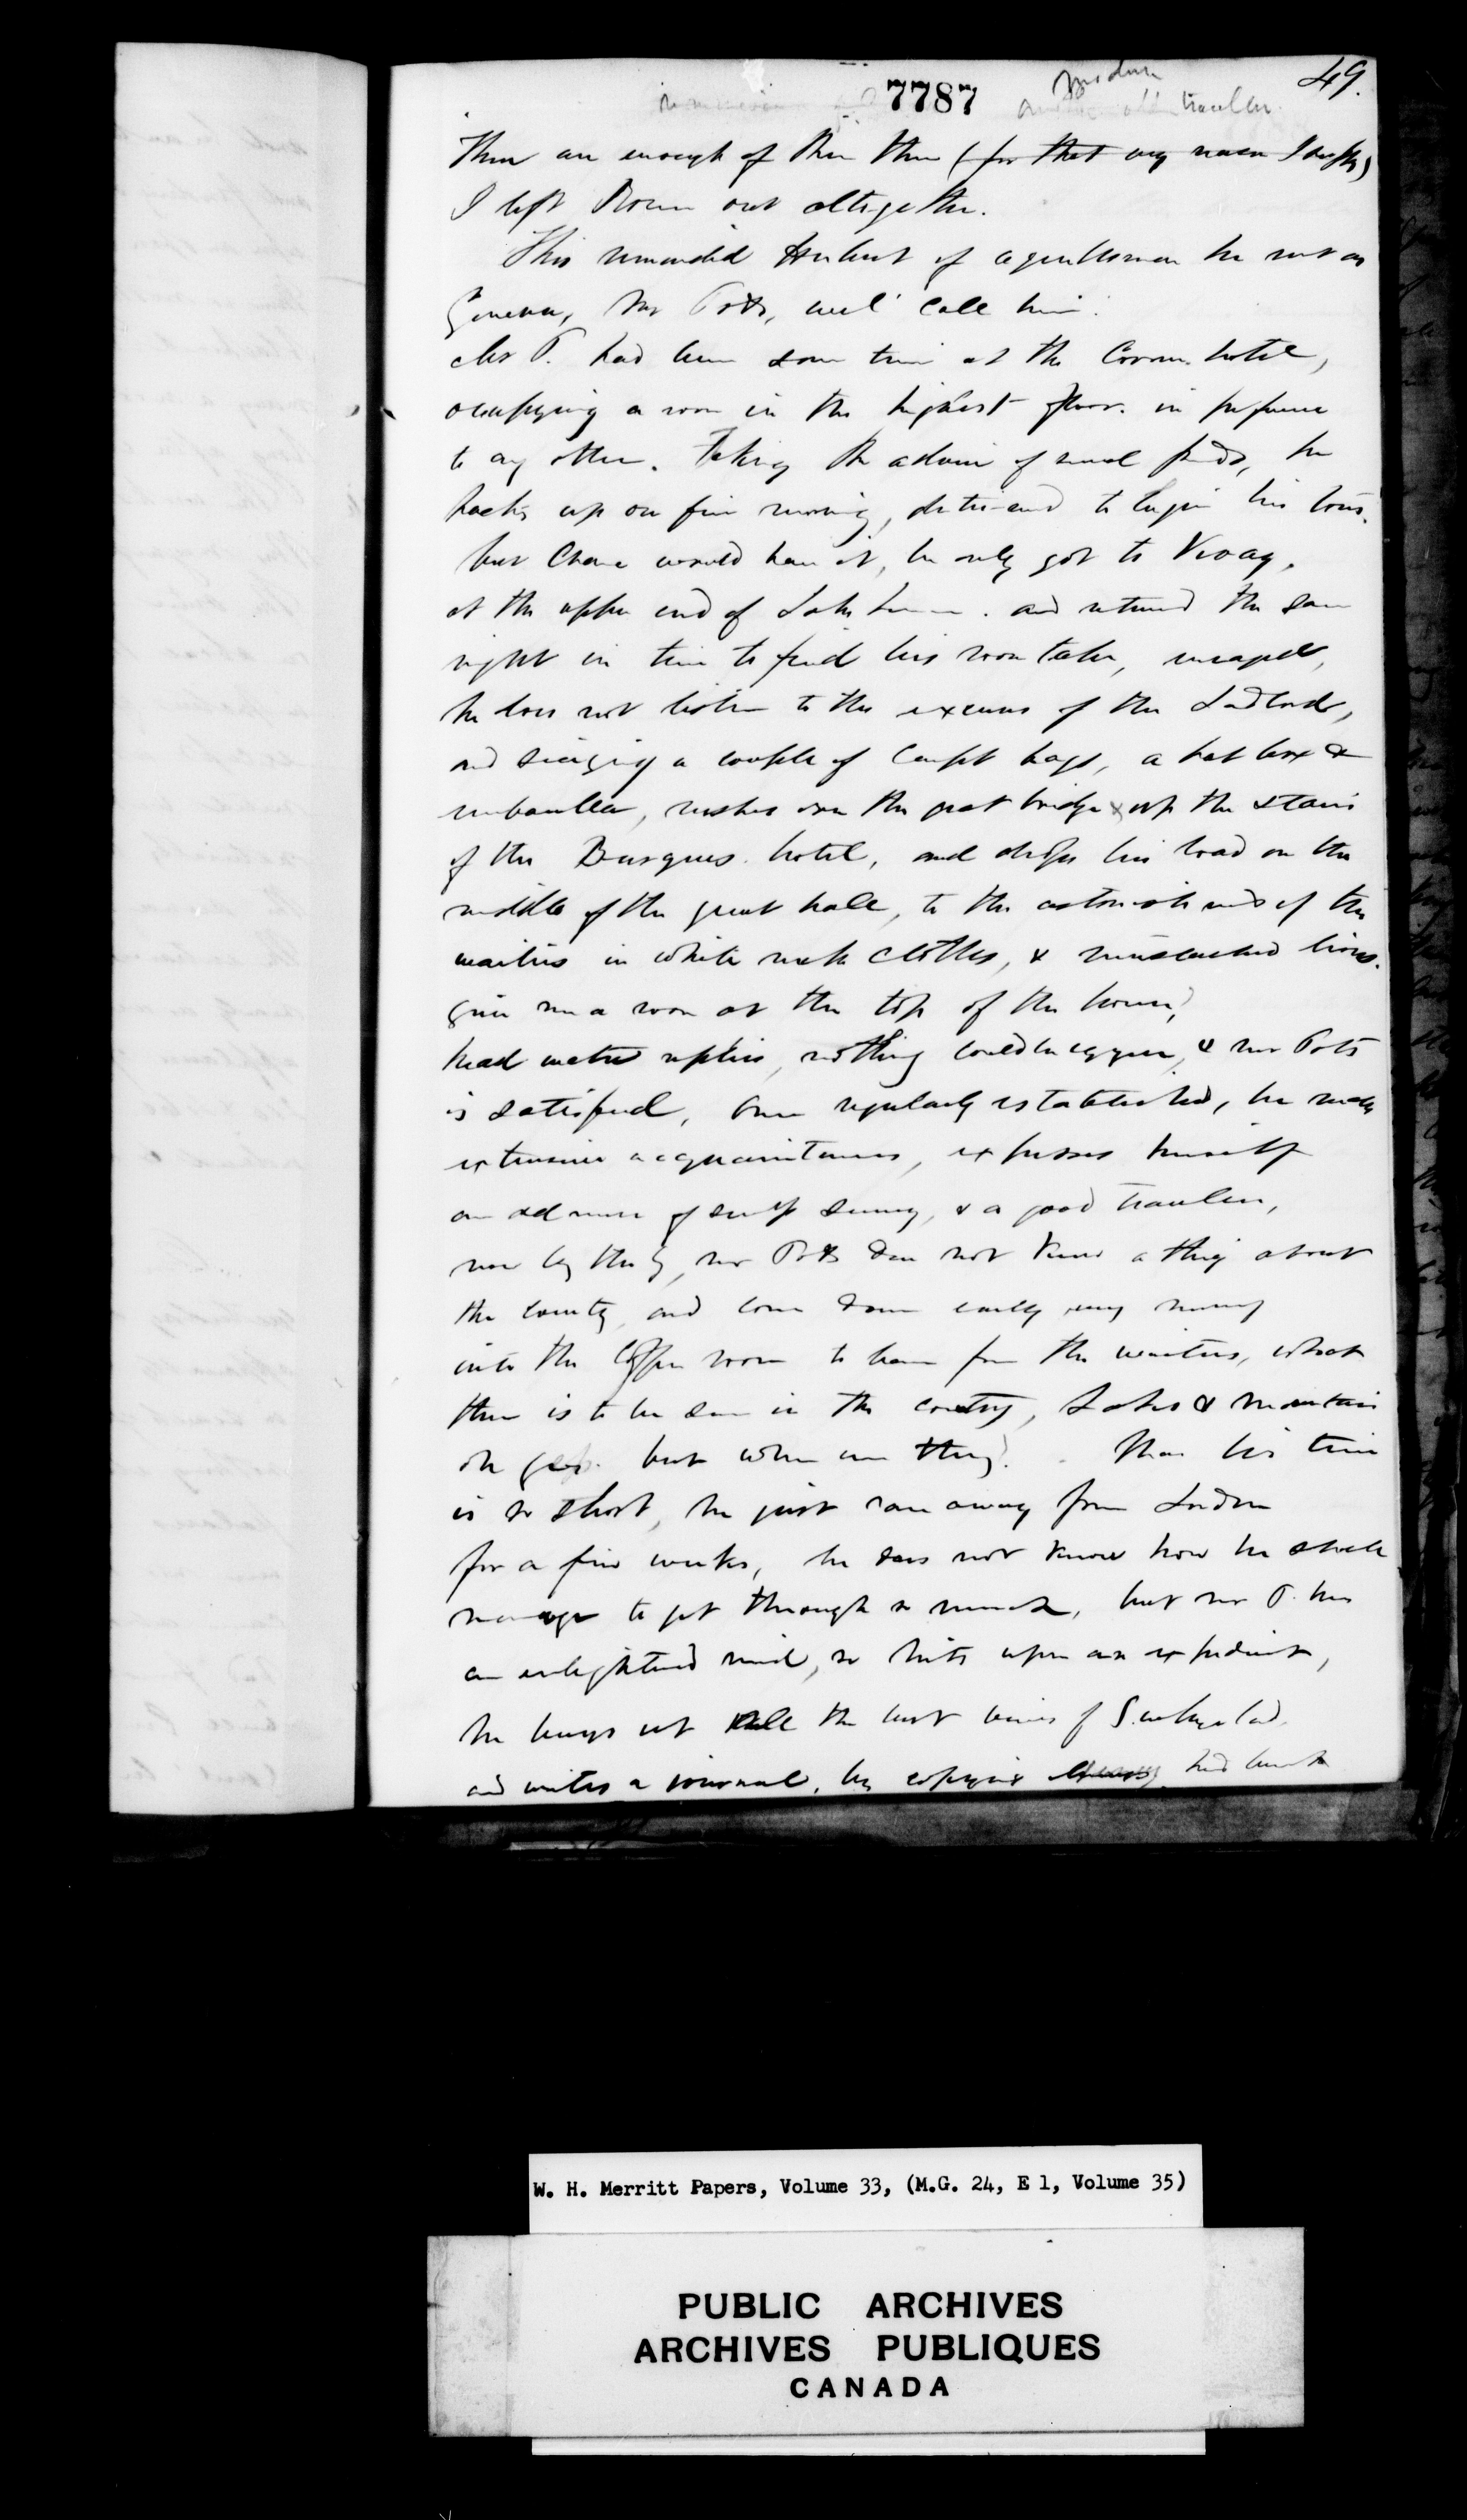 49.
7787
modern
traveller.
There are enough of them there (for that very reason I suppose)
I left Rome out altogether.
This reminded Herbert of a gentleman he met in
Geneva, Mr Potts, we'll call him.
Mr P. had been some time at the Couronne hotel,
occupying a room in the highest floor in preference
to any other. Taking the advice of several friends, he
packs up one fine morning, determined to begin his tour,
but Chance would have it, he only got to Vevay,
at the upper end of Lake Leman. and returned the same
night in time to find his room taken, enraged,
he does not listen to the excuses of the Landlord,
and seizing a couple of Carpet bags, a hat box &
umbrella, rushes over the great bridge & up the stairs
of the Bergues hotel, and drops his load on the
middle of the great hall, to the astonishment of the
waiters in white neck clothes, & mustached lions.
give me a room at the top of the house,
head waiter replies, nothing could be easier, & Mr Potts
is satisfied, Once regularly established, he makes
extensive acquaintances, expresses himself
an admirer of Swiss scenery, & a good traveller,
now by the by, Mr Potts does not know a thing about
the country, and comes down early every morning
into the Coffee room to learn from the waiters, what
there is to be seen in the country, Lakes & mountains
oh yes. but where are they? Then his time
is so short, he just ran away from London
for a few weeks, he does not know how he shall
manage to get through so much, but Mr P. has
an enlightened mind, so hits upon an expedient,
he buys up all the best views of Switzerland,
and writes a journal, by copying hand book
W. H. Merritt Papers, Volume 33, (M.G. 24, E 1, Volume 35)
PUBLIC ARCHIVES
ARCHIVES PUBLIQUES
CANADA